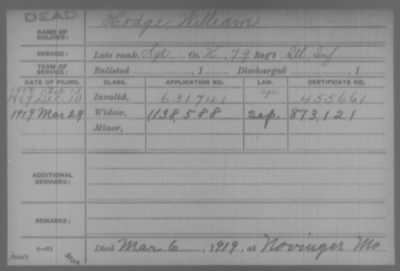 DEAD
Hodge, William
NAME OF SOLDIER:
SERVICE: Late rank, Sgt. Co. K, 79 Reg't Ill. Inf
TERM OF SERVICE: Enlisted , 1 Discharged , 1
DATE OF FILING. CLASS. APPLICATION NO. LAW. CERTIFICATE NO.
Invalid, 631741 455661
1919 Mar 29 Widow, 1138,588 Sep. 873,121
Minor,
ADDITIONAL SERVICES:
REMARKS:
Died Mar 6, 1919, at Novinger Mo